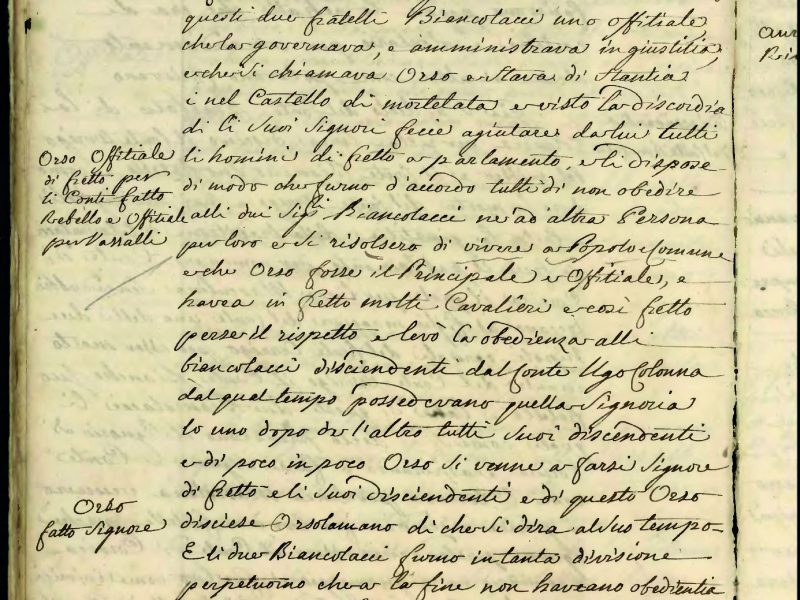 questi due fratelli Biancolacci uno offitiale
che la governava, e amministrava in giustitia,
e che si chiamava Orso e stava di stantia
i nel Castello di mortelata e visto la discordia
di li suoi signori fecie agiutare da lui tutti
li homini di fretto a parlamento, e li dispose
di modo che furno d'accordo tutti di non obedire
alli dui Sigri Biancolacci ne ad altra Persona
per loro e si risolsero di vivere a Popolo e Comune
e che Orso fosse il Principale e Offitiale, e
havea in fretto molti Cavalieri e così fretto
perse il rispetto e levò la obedienza alli
biancolacci disciendenti dal Conte Ugo Colonna
dal qual tempo possedevano quella Signoria
lo uno dopo de l'altro tutti suoi discendenti
e di poco in poco Orso si venne a farsi Signore
di fretto e li suoi disciendenti e di questo Orso
disciese Orsolamano di che si dira al suo tempo
E li due Biancolacci furno in tanta divisione
perpetuorno che a la fine non haveano obedientia
Orso Offitiale
di fretto per
li Conti fatto
Rebello e Offitiale
per Vassalli
Orso
fatto Signore